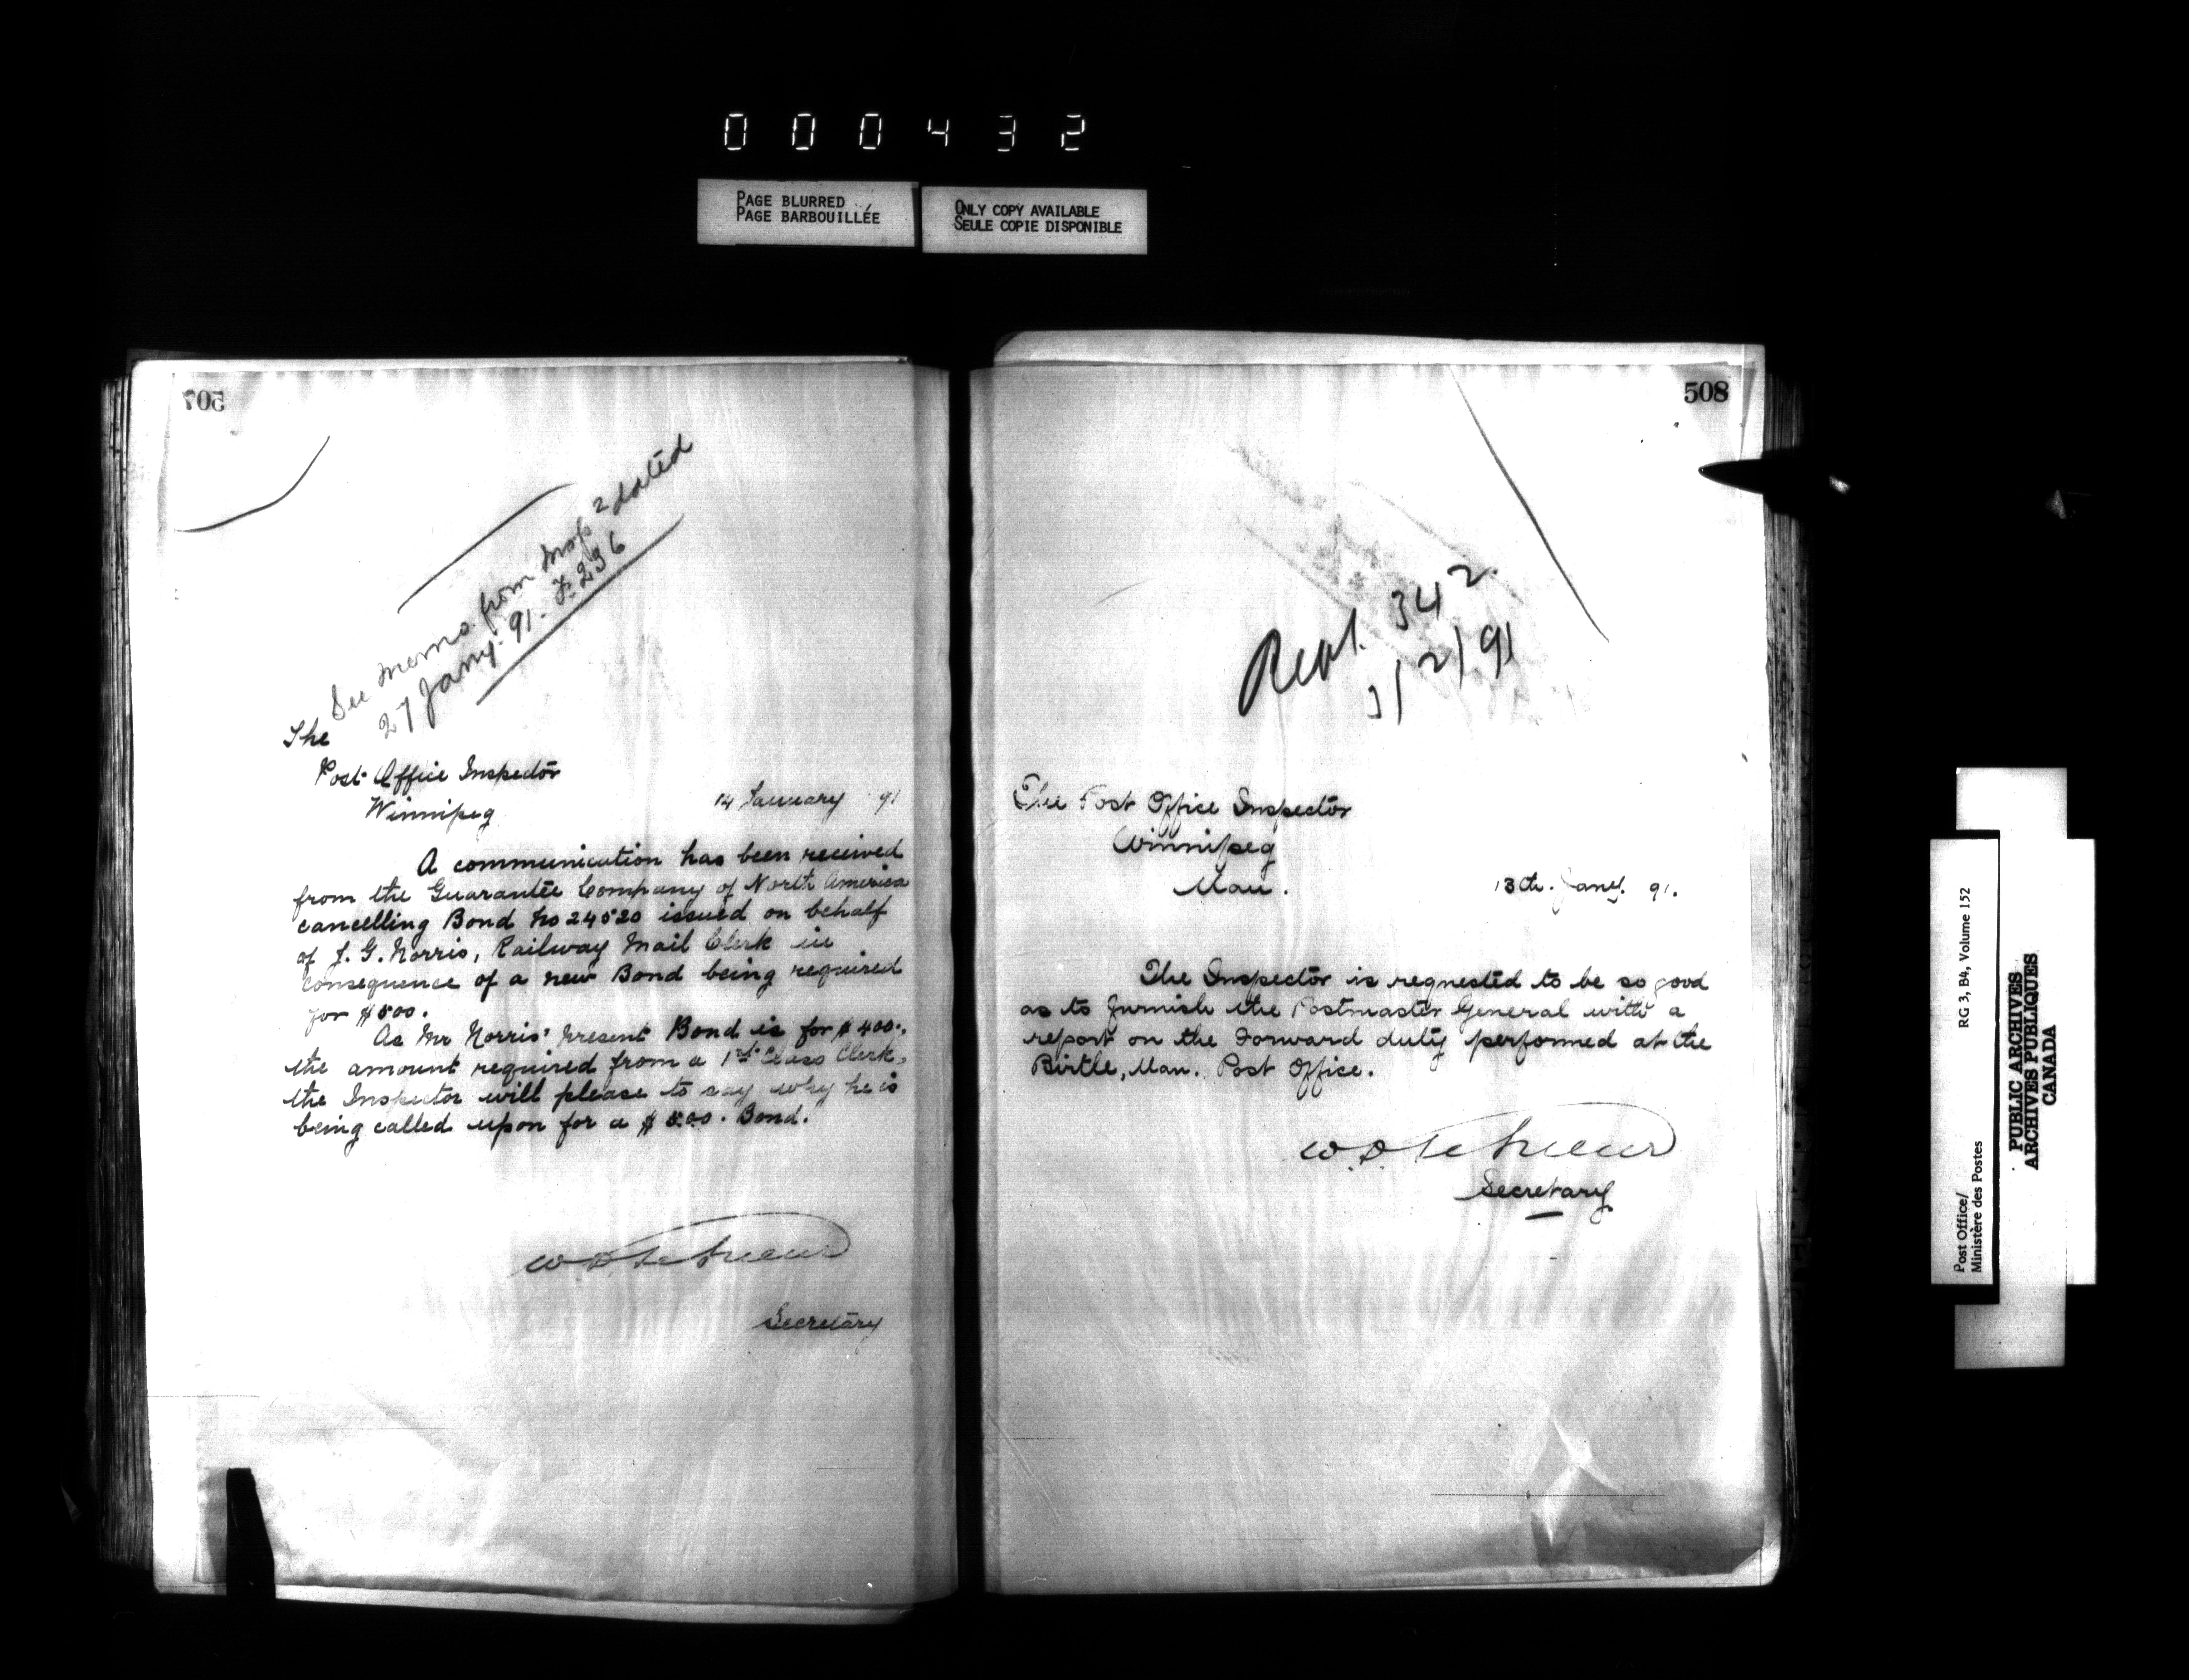 000432
PAGE BLURRED
PAGE BARBOUILLÉE
ONLY COPY AVAILABLE
SEULE COPIE DISPONIBLE
507
See memo. from Insp. dated
27 Jany. 91. F. 236
The
Post Office Inspector
Winnipeg
14 January 91
A communication has been received
from the Guarantee Company of North America
cancelling Bond No 24520 issued on behalf
of J. G. Norris, Railway Mail Clerk in
consequence of a new Bond being required
for $500.
As Mr Norris' present Bond is for $400.,
the amount required from a 1st Class Clerk,
the Inspector will please to say why he is
being called upon for a $500. Bond.
Secretary
508
342.
3/2/91
The Post Office Inspector
Winnipeg
Man.
13th. Jany. 91.
The Inspector is requested to be so good
as to furnish the Postmaster General with a
report on the Forward duty performed at the
Birtle, Man. Post Office.
Secretary
Post Office/
Ministère des Postes
RG 3, B4, Volume 152
PUBLIC ARCHIVES
ARCHIVES PUBLIQUES
CANADA